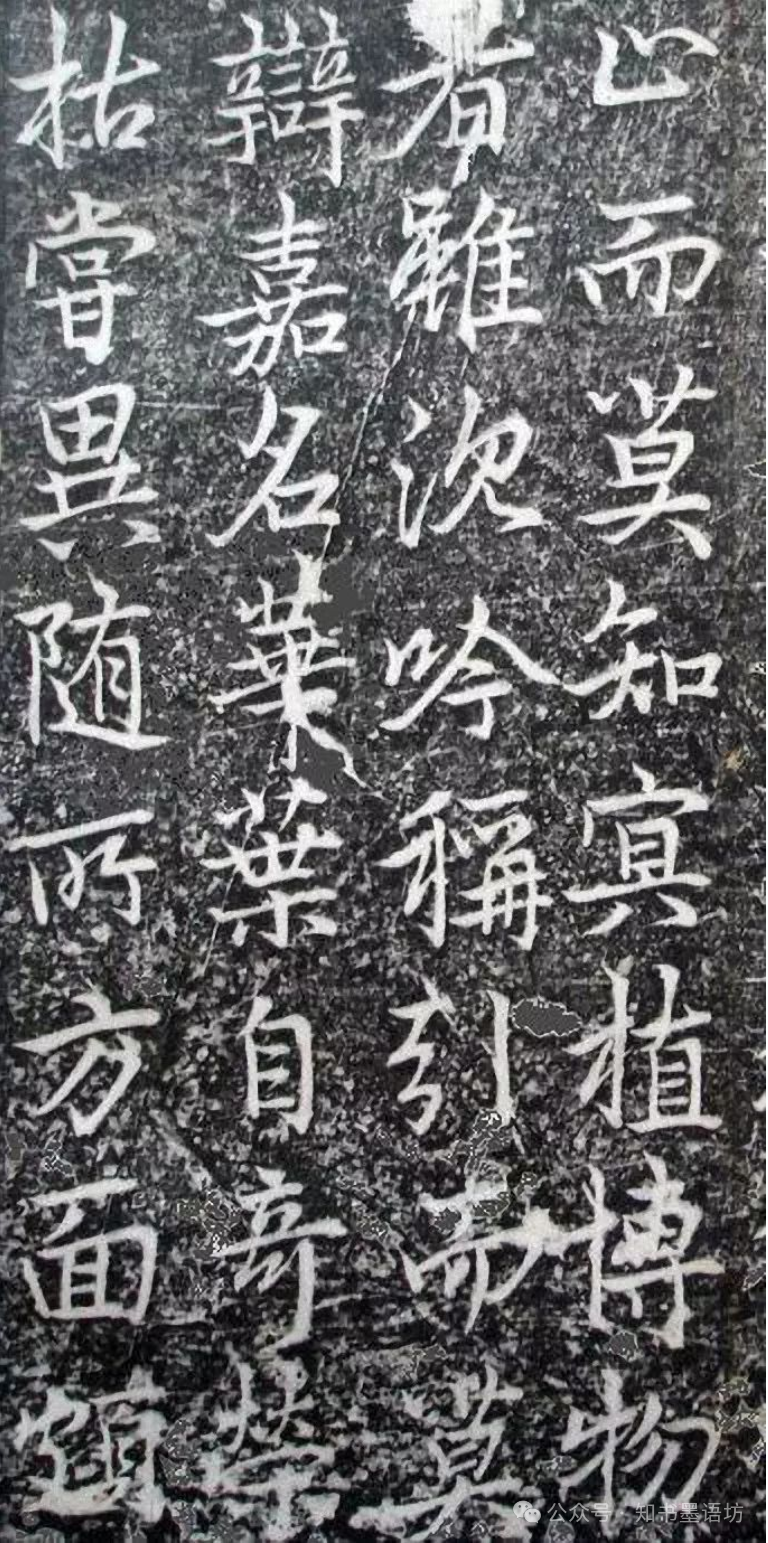 止而莫知冥植博物
者雖沉吟稱引而莫
辯嘉名華葉自奇榮
枯嘗異随所方面頗
公众号 · 知书墨语坊